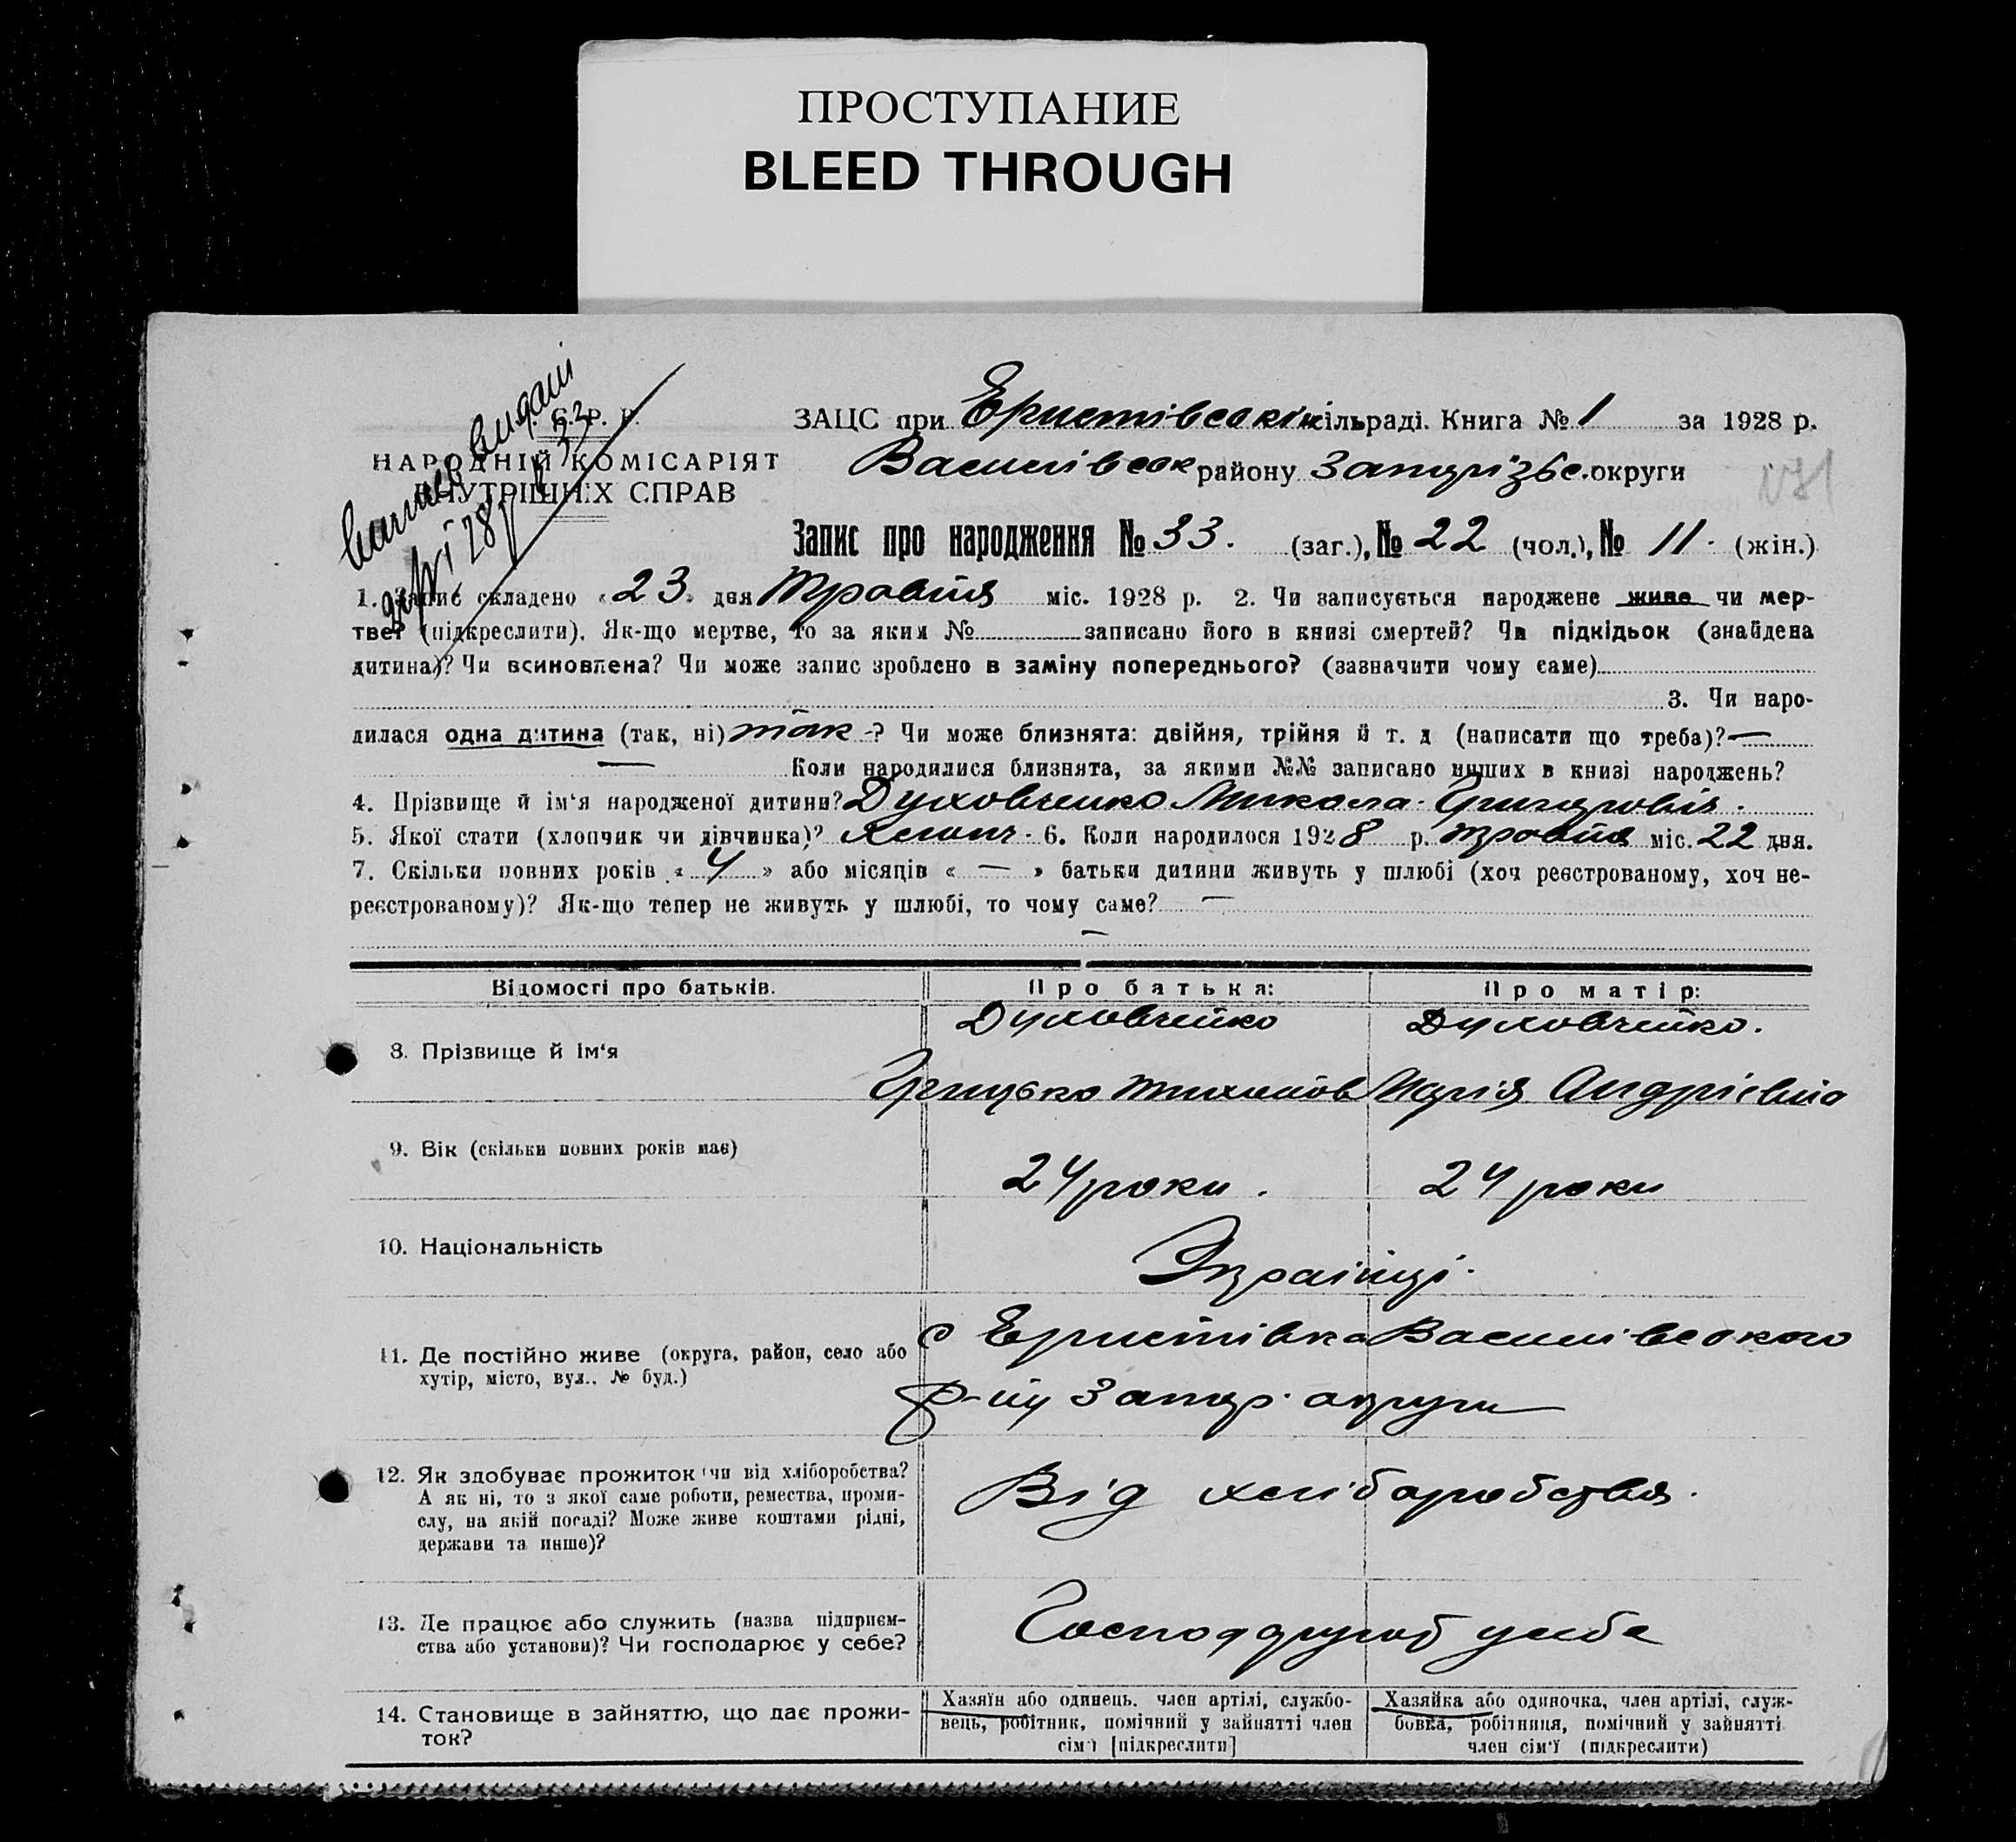 ПРОСТУПАНИЕ
BLEED THROUGH
ЗАЦС при Еристівській сільраді. Книга № 1 за 1928 р.
НАРОДНІЙ КОМІСАРІЯТ
ВНУТРІШНІХ СПРАВ
Василівськ району Запорізьс. округи
Запис про народження № 33. (заг.), № 22 (чол.), № 11. (жін.)
1. Запис складено «23» дня Травня міс. 1928 р. 2. Чи записується народжене живе чи мер-
тве? (підкреслити). Як-що мертве, то за яким № записано його в книзі смертей? Чи підкідьок (знайдена
дитина)? Чи всиновлена? Чи може запис зроблено в заміну попереднього? (зазначити чому саме)
3. Чи наро-
дилася одна дитина (так, ні) так -? Чи може близнята: двійня, трійня й т. д (написати що треба)? —
— Коли народилися близнята, за якими №№ записано инших в книзі народжень?
4. Прізвище й ім'я народженої дитини? Духовченко Микола Григоровів.
5. Якої стати (хлопчик чи дівчинка)? Хлопч. 6. Коли народилося 1928 р. травня міс. 22 дня.
7. Скільки повних років «4» або місяців « — » батьки дитини живуть у шлюбі (хоч реєстрованому, хоч не-
реєстрованому)? Як-що тепер не живуть у шлюбі, то чому саме? —
—
Відомості про батьків. Про батька: Про матір:
Духовченко Духовченко.
8. Прізвище й ім'я
Грицько Тихонов Марія Андрієвна
9. Вік (скільки повних років має)
24 роки. 24 роки
10. Національність
Українці.
11. Де постійно живе (округа, район, село або
хутір, місто, вул.. № буд.)
с Еристівка Василівського
р-ну Запор. округи
12. Як здобуває прожиток (чи від хліборобства?
А як ні, то з якої саме роботи, ремества, проми-
слу, на якій посаді? Може живе коштами рідні,
держави та инше)?
Від хліборобства.
13. Де працює або служить (назва підприєм-
ства або установи)? Чи господарює у себе?
14. Становище в зайняттю, що дає прожи-
ток?
Хазяїн або одинець. член артілі, службо-
вець, робітник, помічний у зайнятті член
сім'ї [підкреслити]
Хазяйка або одиночка, член артілі, служ-
бовка, робітниця, помічний у зайнятті
член сім'ї (підкреслити)